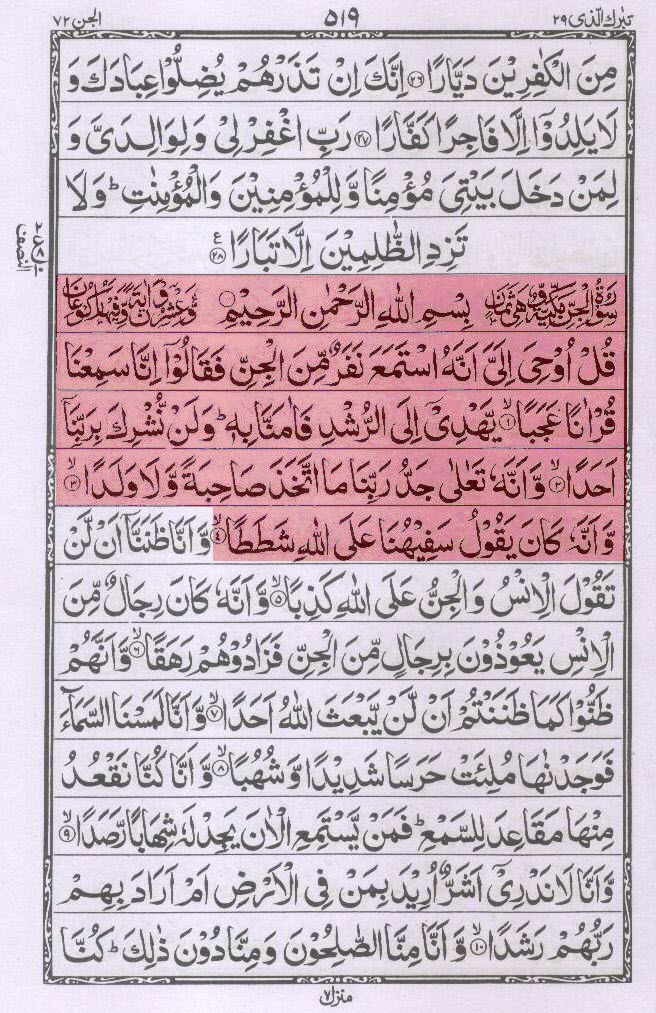 تبٰرك الّذی ٢٩ ٥١٩ الجن ٧٢
مِنَ الْكٰفِرِيْنَ دَيَّارًا ﴿٢٦﴾ اِنَّكَ اِنْ تَذَرْهُمْ يُضِلُّوْا عِبَادَكَ وَ
لَا يَلِدُوْۤا اِلَّا فَاجِرًا كَفَّارًا ﴿٢٧﴾ رَبِّ اغْفِرْ لِیْ وَلِوَالِدَیَّ وَ
لِمَنْ دَخَلَ بَيْتِیَ مُؤْمِنًا وَّ لِلْمُؤْمِنِيْنَ وَالْمُؤْمِنٰتِ ؕ وَلَا
تَزِدِ الظّٰلِمِيْنَ اِلَّا تَبَارًا ﴿٢٨﴾ ع
النصف
سُوْرَةُ الْجِنِّ مَكِّيَّةٌ وَّهِیَ ثَمَانٍ بِسْمِ اللهِ الرَّحْمٰنِ الرَّحِيْمِ وَّعِشْرُوْنَ اٰيَةً وَّفِيْهَا رُكُوْعَانِ
قُلْ اُوْحِیَ اِلَیَّ اَنَّهُ اسْتَمَعَ نَفَرٌ مِّنَ الْجِنِّ فَقَالُوْۤا اِنَّا سَمِعْنَا
قُرْاٰنًا عَجَبًا ﴿١﴾ۙ يَّهْدِیْۤ اِلَی الرُّشْدِ فَاٰمَنَّا بِهٖ ؕ وَلَنْ نُّشْرِكَ بِرَبِّنَاۤ
اَحَدًا ﴿٢﴾ۙ وَّ اَنَّهٗ تَعٰلٰی جَدُّ رَبِّنَا مَا اتَّخَذَ صَاحِبَةً وَّلَا وَلَدًا ﴿٣﴾ۙ
وَّ اَنَّهٗ كَانَ يَقُوْلُ سَفِيْهُنَا عَلَی اللهِ شَطَطًا ﴿٤﴾ۙ وَّ اَنَّا ظَنَنَّاۤ اَنْ لَّنْ
تَقُوْلَ الْاِنْسُ وَالْجِنُّ عَلَی اللهِ كَذِبًا ﴿٥﴾ۙ وَّ اَنَّهٗ كَانَ رِجَالٌ مِّنَ
الْاِنْسِ يَعُوْذُوْنَ بِرِجَالٍ مِّنَ الْجِنِّ فَزَادُوْهُمْ رَهَقًا ﴿٦﴾ۙ وَّ اَنَّهُمْ
ظَنُّوْا كَمَا ظَنَنْتُمْ اَنْ لَّنْ يَّبْعَثَ اللهُ اَحَدًا ﴿٧﴾ۙ وَّ اَنَّا لَمَسْنَا السَّمَآءَ
فَوَجَدْنٰهَا مُلِئَتْ حَرَسًا شَدِيْدًا وَّ شُهُبًا ﴿٨﴾ۙ وَّ اَنَّا كُنَّا نَقْعُدُ
مِنْهَا مَقَاعِدَ لِلسَّمْعِ ؕ فَمَنْ يَّسْتَمِعِ الْاٰنَ يَجِدْ لَهٗ شِهَابًا رَّصَدًا ﴿٩﴾ۙ
وَّ اَنَّا لَا نَدْرِیْۤ اَشَرٌّ اُرِيْدَ بِمَنْ فِی الْاَرْضِ اَمْ اَرَادَ بِهِمْ
رَبُّهُمْ رَشَدًا ﴿١٠﴾ۙ وَّ اَنَّا مِنَّا الصّٰلِحُوْنَ وَمِنَّا دُوْنَ ذٰلِكَ ؕ كُنَّا
منزل ٧